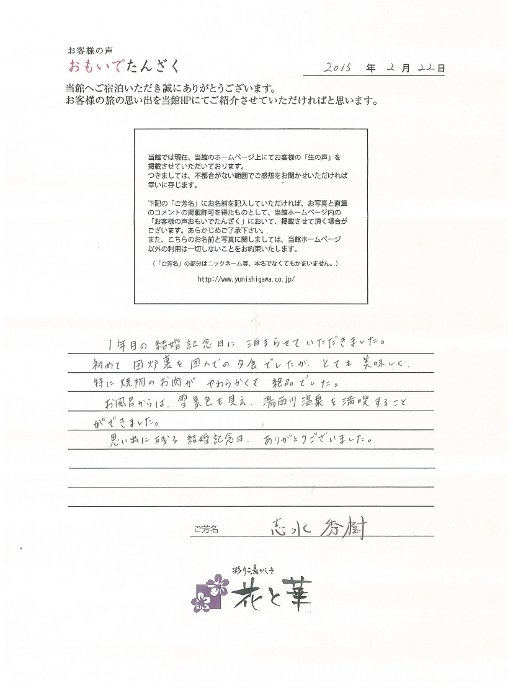 お客様の声
おもいでたんざく
2015 年 2 月 22 日
当館へご宿泊いただき誠にありがとうございます。
お客様の旅の思い出を当館HPにてご紹介させていただければと思います。
当館では現在、当館のホームページ上にてお客様の「生の声」を
掲載させていただいております。
つきましては、不都合がない範囲でご感想をお聞かせいただければ
幸いに存じます。
下記の「ご芳名」にお名前を記入していただければ、お写真と直筆
のコメントの掲載許可を得たものとして、当館ホームページ内の
「お客様の声おもいでたんざく」において、掲載させて頂く場合が
ございます。あらかじめご了承下さい。
また、こちらのお名前と写真に関しましては、当館ホームページ
以外の利用は一切しないことをお約束いたします。
(「ご芳名」の部分はニックネーム等、本名でなくてもかまいません。)
http://www.yunishigawa.co.jp/
1年目の結婚記念日に泊まらせていただきました。
初めて囲炉裏を囲んでの夕食でしたが、とても美味しく、
特に焼物のお肉がやわらかくて絶品でした。
お風呂からは、雪景色も見え、湯西川温泉を満喫すること
ができました。
思い出に残る結婚記念日、ありがとうございました。
ご芳名 志水 秀樹
彩り湯かしき
花と華